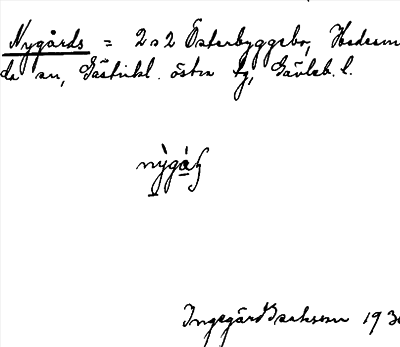 Nygårds = 2 o 2 Österbyggebo, Hedesun
da sn, Gästrikl. östra tg, Gävleb. l.
nỳgá̱
Ingegärd Isaksson 193